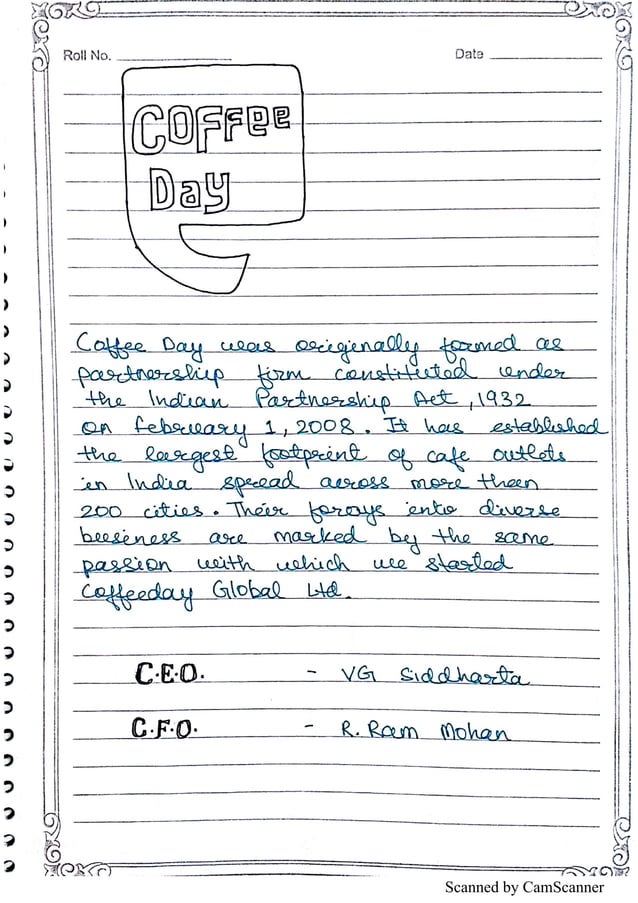 Roll No.
Date
COFFee
Day
Coffee Day was originally formed as
partnership firm constituted under
the Indian Partnership Act, 1932
on february 1, 2008. It has established
the largest footprint of cafe outlets
in India spread across more than
200 cities. Their forays into diverse
business are marked by the same
passion with which we started
Coffeeday Global Ltd.
C.E.O. - VG Siddharta
C.F.O. - R. Ram Mohan
Scanned by CamScanner